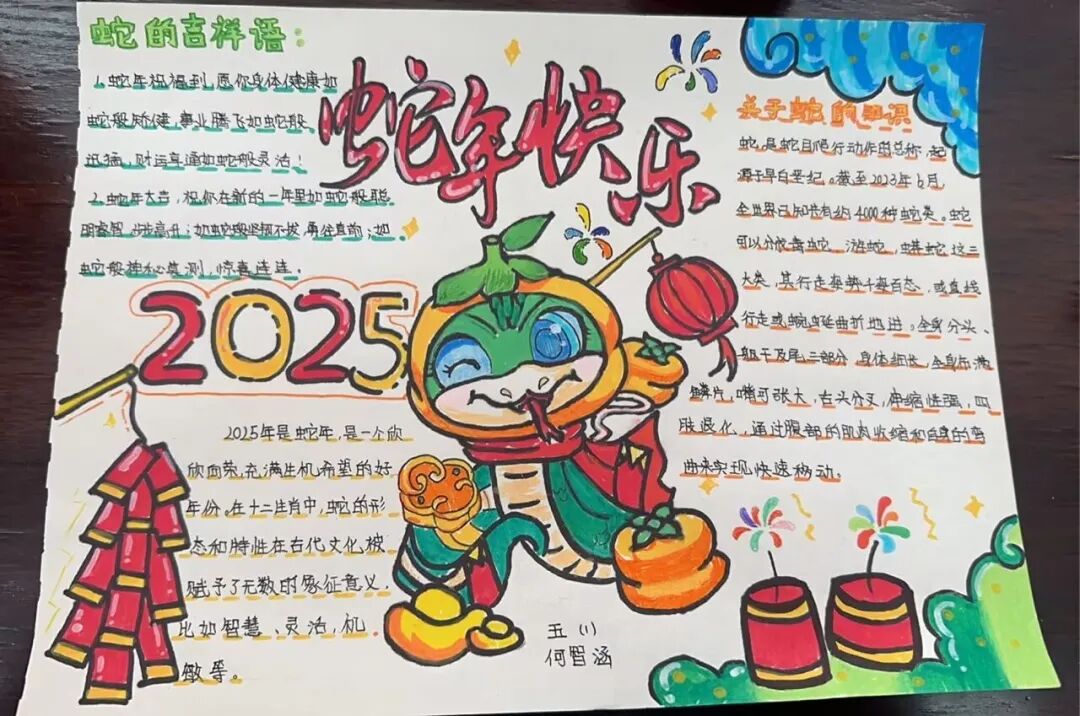 蛇的吉祥语:
1.蛇年祝福到,愿你身体健康如
蛇般矫健,事业腾飞如蛇般
迅猛,财运亨通如蛇般灵活!
2.蛇年大吉,祝你在新的一年里如蛇般聪
明睿智,步步高升;如蛇般坚韧不拔,勇往直前;如
蛇般神秘莫测,惊喜连连.
蛇年快乐
2025
2025年是蛇年,是一个欣
欣向荣,充满生机希望的好
年份,在十二生肖中,蛇的形
态和特性在古代文化被
赋予了无数的象征意义.
比如智慧、灵活、机
敏等。
关于蛇的知识
蛇,是蛇目爬行动作的总称,起
源于早白垩纪。截至2023年6月,
全世界已知共有约4000种蛇类。蛇
可以分做盲蛇、游蛇、蟒蛇这三
大类,其行走姿势千姿百态,或直线
行走或蜿蜒曲折地进。全身分头、
躯干及尾三部分,身体细长,全身布满
鳞片,嘴可张大,舌头分叉,伸缩性强,四
肢退化,通过腹部的肌肉收缩和自身的弯
曲来实现快速移动.
五(1)
何智涵